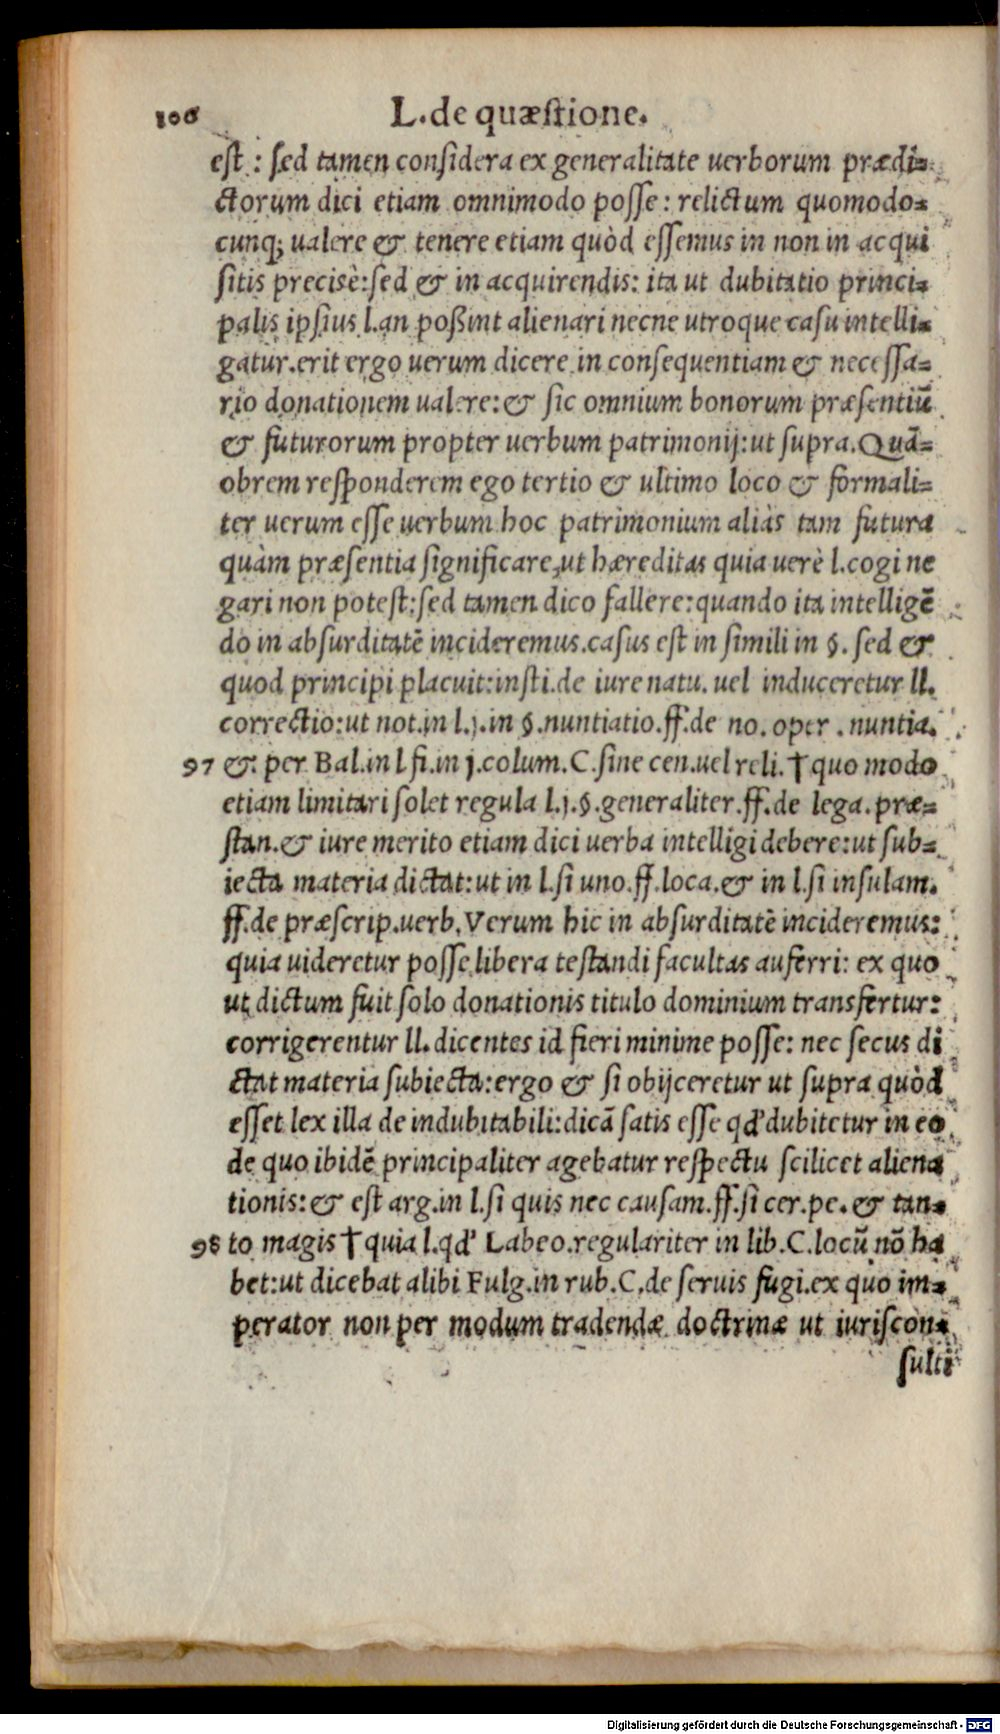 106 L. de quæstione.
est : sed tamen considera ex generalitate uerborum prædi-
ctorum dici etiam omnimodo posse: relictum quomodo-
cunq; ualere & tenere etiam quòd essemus in non in acqui
sitis precisè: sed & in acquirendis: ita ut dubitatio princi-
palis ipsius l. an poßint alienari necne utroque casu intelli-
gatur. erit ergo uerum dicere in consequentiam & necessa-
rio donationem ualere: & sic omnium bonorum præsentiū
& futurorum propter uerbum patrimonij: ut supra. Quā-
obrem responderem ego tertio & ultimo loco & formali-
ter uerum esse uerbum hoc patrimonium aliàs tam futura
quàm præsentia significare, ut hæreditas quia uerè l. cogi ne
gari non potest: sed tamen dico fallere: quando ita intelligē
do in absurditatē incideremus. casus est in simili in §. sed &
quod principi placuit: insti. de iure natu. uel induceretur ll.
correctio: ut not. in l. j. in §. nuntiatio. ff. de no. oper. nuntia.
97 & per Bal. in l fi. in j. colum. C. sine cen. uel reli. † quo modo
etiam limitari solet regula l. j. §. generaliter. ff. de lega. præ-
stan. & iure merito etiam dici uerba intelligi debere: ut sub-
iecta materia dictat: ut in l. si uno. ff. loca. & in l. si insulam.
ff. de præscrip. uerb. Verum hic in absurditatē incideremus:
quia uideretur posse libera testandi facultas auferri: ex quo
ut dictum fuit solo donationis titulo dominium transfertur:
corrigerentur ll. dicentes id fieri minime posse: nec secus di
ctat materia subiecta: ergo & si obijceretur ut supra quòd
esset lex illa de indubitabili: dicā satis esse qd' dubitetur in eo
de quo ibidē principaliter agebatur respectu scilicet aliena
tionis: & est arg. in l. si quis nec causam. ff. si cer. pe. & tan-
98 to magis † quia l. qd' Labeo. regulariter in lib. C. locū nō ha
bet: ut dicebat alibi Fulg. in rub. C. de seruis fugi. ex quo im-
perator non per modum tradendæ doctrinæ ut iuriscon-
sulti
Digitalisierung gefördert durch die Deutsche Forschungsgemeinschaft - DFG